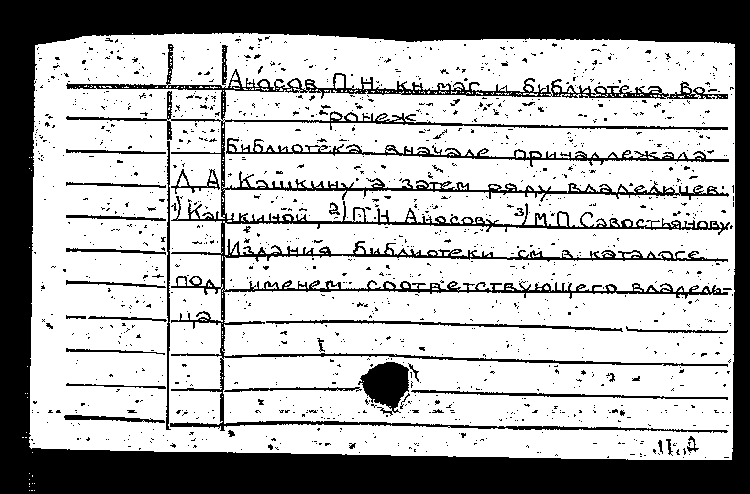 Аносов, П.Н. кн. маг. и библиотека Во-
ронеж
Библиотека вначале принадлежала
А. Кашкину, а затем ряду владельцев:
1) Кашкиной, 2) П.Н. Аносову, 3) М.П. Савостьянову.
Издания библиотеки см. в каталоге
под именем соответствующего владель-
ца